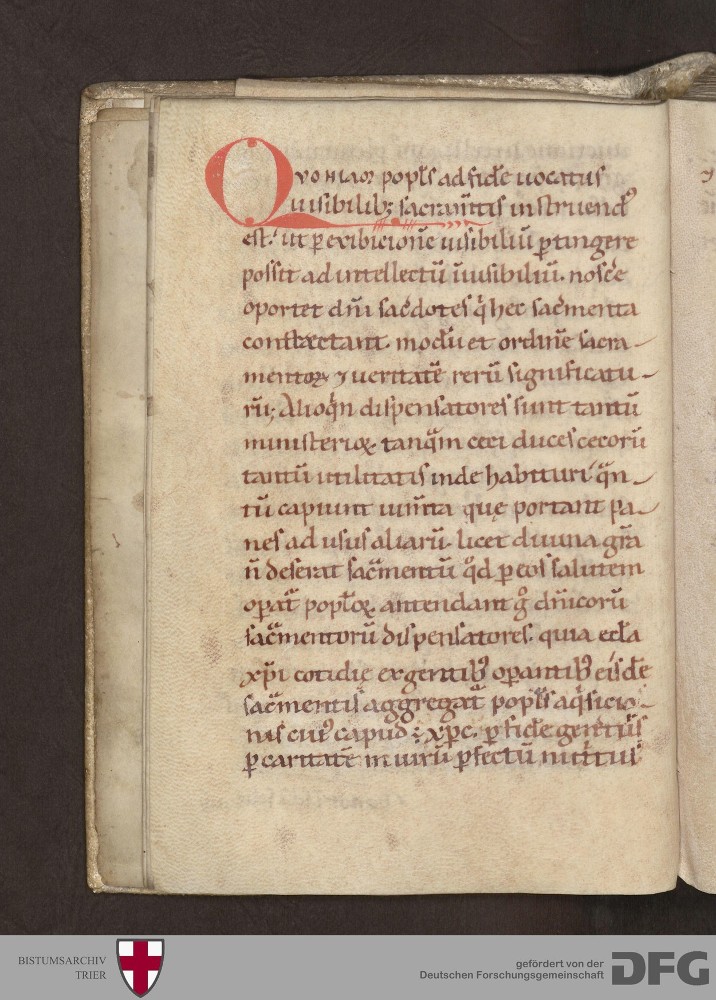 Quoniam popls ad fidē uocatus
uisibilib; sacram̄tis instruend᷒
est. ut p exibicionē uisibiliū ptingere
possit ad intellectū īuisibiliū. nosc̄e
oportet dn̄i sac̄dotes q̇ hec sac̄menta
contrectant. modū et ordinē sacra-
mentoꝝ ⁊ ueritatē rerū significatu-
rū; Alioq̄n dispensatores sunt tantū
ministerioꝝ. tanq̄m ceci duces cecorū
tantū utilitatis inde habituri q̄n-
tū capiunt ium̄ta quę portant pa-
nes ad usus aliarū. licet diuina gr̄a
n̄ deserat sac̄mentū qd̄ p eos salutem
opat̄ poploꝝ. attendant g̊ dn̄icorū
sac̄mentorū dispensatores. quia eccl̄a
xp̄i cotidię ex gentib᷒ opantib᷒ eisdē
sac̄mentis aggregat̄ popls aq̇sicio-
nis cui᷒ capud ÷ xp̄c. p fidē
p caritatē in uirū pfectū
BISTUMSARCHIV
TRIER
gefördert von der
Deutschen Forschungsgemeinschaft
DFG